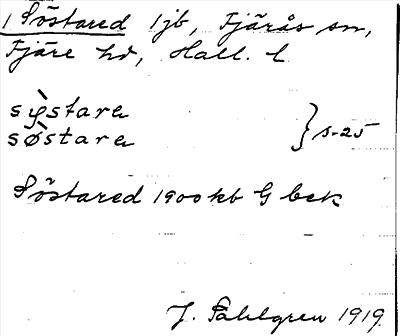 1 Söstared 1 jb, Fjärås sn,
Fjäre hd, Hall. l.
sø̀stara
sø̀stara } s. 25
Söstared 1900 kb G bek
J. Sahlgren 1919.